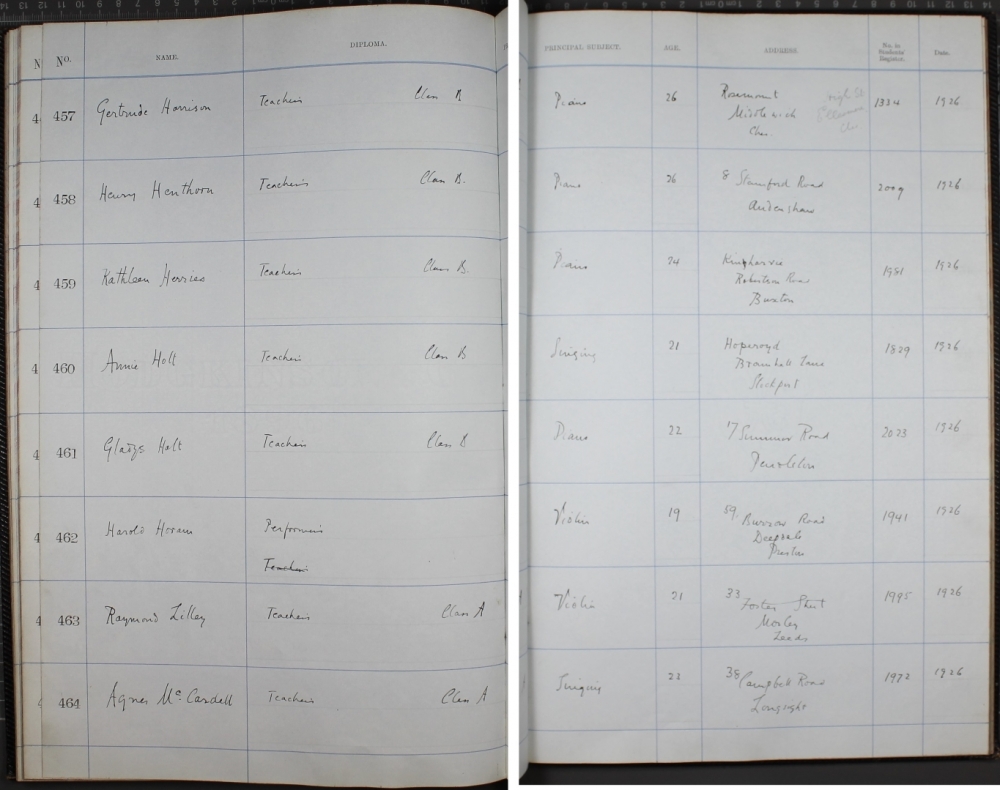 No. NAME. DIPLOMA.
457 Gertrude Harrison Teacher's Class B
458 Henry Henthorn Teacher's Class B.
459 Kathleen Herries Teacher's Class B.
460 Annie Holt Teacher's Class B
461 Gladys Holt Teacher's Class B
462 Harold Horam Performer's
Teacher's
463 Raymond Lilley Teacher's Class A
464 Agnes Mc Cardell Teacher's Class A
PRINCIPAL SUBJECT. AGE. ADDRESS. No. in Students' Register. Date.
Piano 26 Rosemount 1334 1926
Middlewich
Ches.
High St
Piano 26 8 Stamford Road 2009 1926
Audenshaw
Piano 24 1981 1926
Robertson Road
Buxton
Singing 21 Hoperoyd 1829 1926
Bramhall Lane
Stockport
Piano 22 17 Summer Road 2023 1926
Pendleton
Violin 19 59, Burrow Road 1941 1926
Deepdale
Preston
Violin 21 33 Foster Street 1995 1926
Morley
Leeds
Singing 22 38 Campbell Road 1972 1926
Longsight